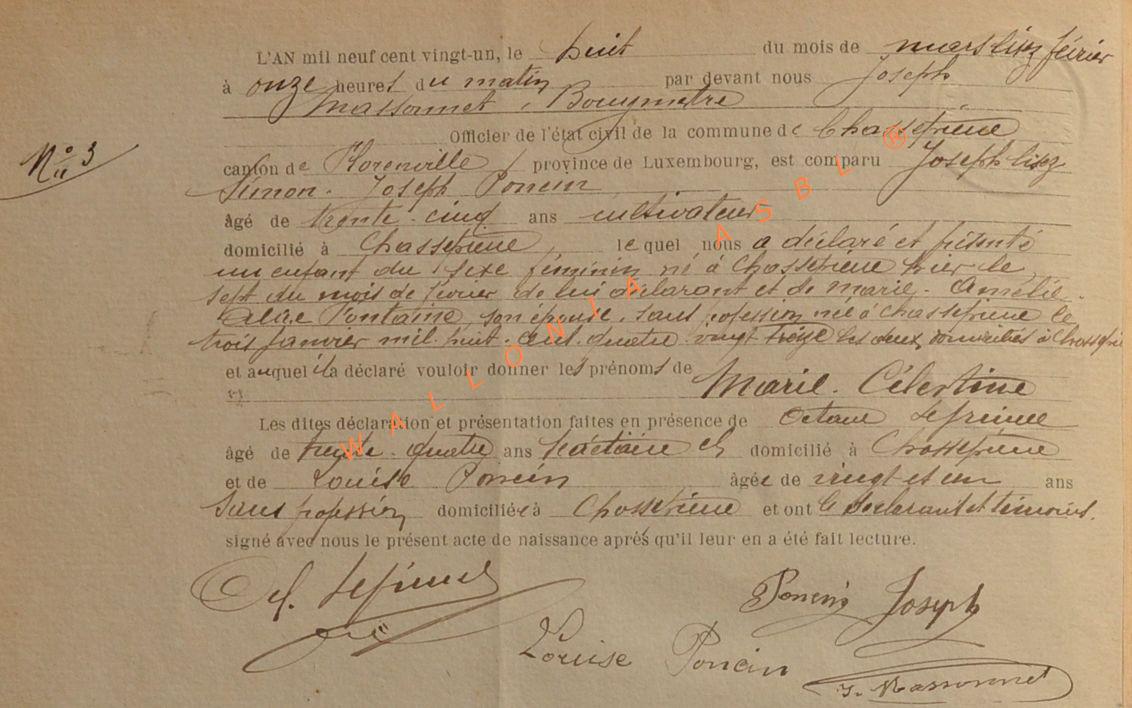 L'AN mil neuf cent vingt-un, le huit du mois de mars lisez février
à onze heures du matin par devant nous Joseph
Massonnet, Bourgmestre
Officier de l'état civil de la commune de Chassepierre
N° 3
canton de Florenville, province de Luxembourg, est comparu Joseph lisez
Simon-Joseph Poncin
âgé de trente-cinq ans cultivateur
domicilié à Chassepierre, lequel nous a déclaré et présenté
un enfant du sexe féminin né à Chassepierre hier le
sept du mois de février de lui déclarant et de Marie-Amélie-
Fontaine son épouse, sans profession née à Chassepierre le
trois janvier mil huit-cent-quatre-vingt-treize les deux domiciliés à Chassepierre
et auquel il a déclaré vouloir donner les prénoms de Marie-Célestine
Les dites déclaration et présentation faites en présence de Octave Lefèvre
âgé de trente-quatre ans domicilié à Chassepierre
et de Louise Poncin âgée de vingt et un ans
sans profession domiciliée à Chassepierre et ont le déclarant et témoins
signé avec nous le présent acte de naissance après qu'il leur en a été fait lecture.
Poncin Joseph
Louise Poncin
J. Massonnet
WALLONIA ASBL ®